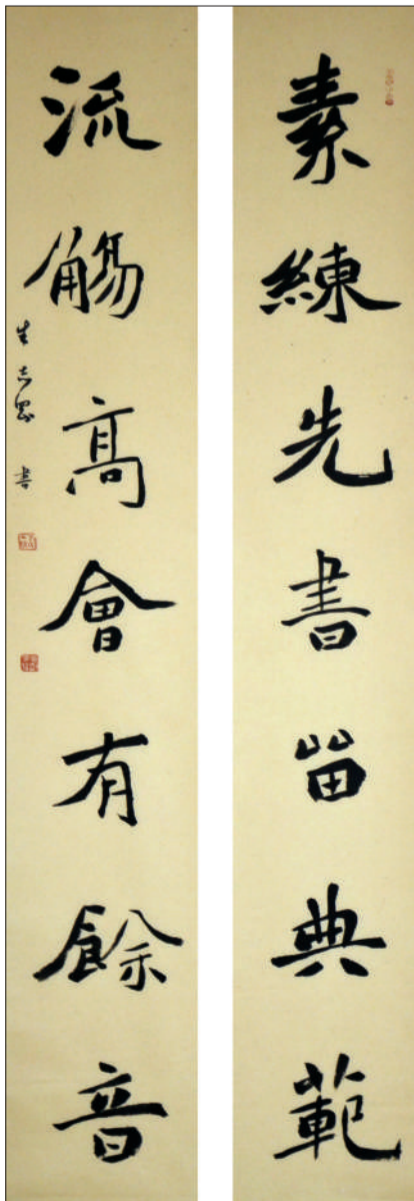 素練先書留典範
流觴高會有餘音
書